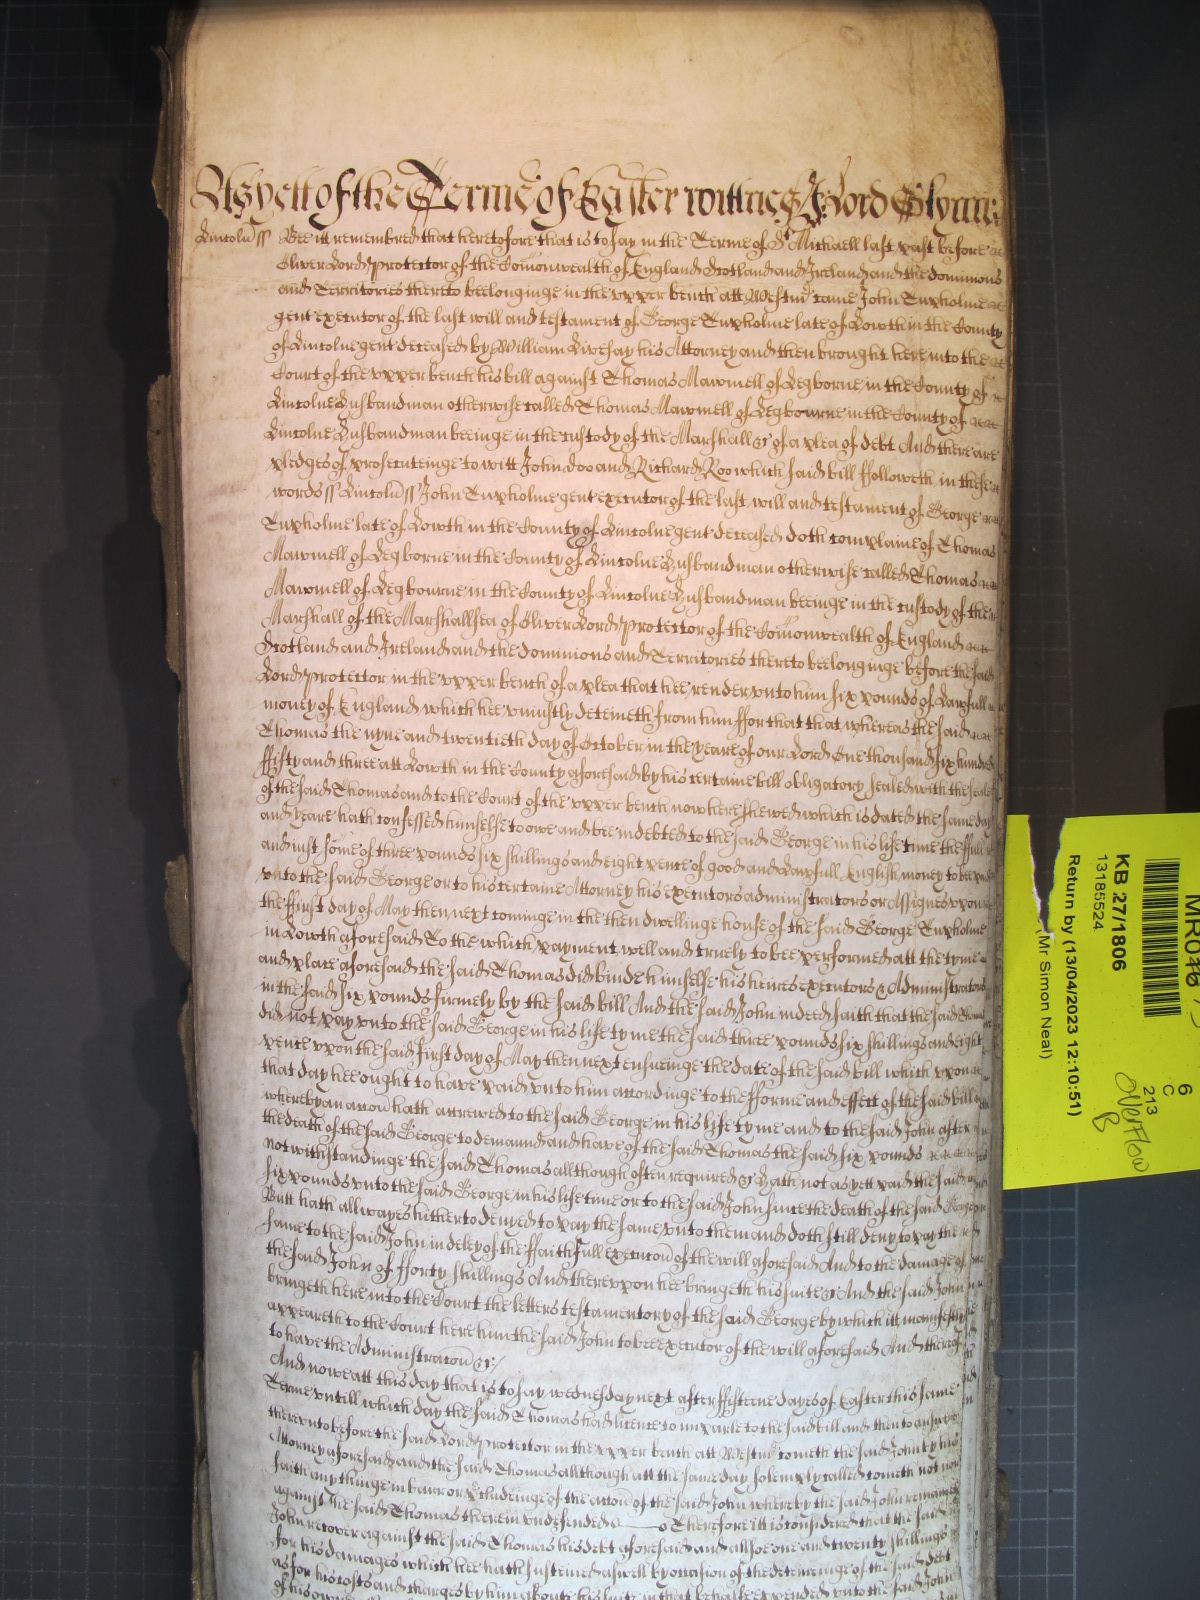 As yett of the Terme of Easter wittnes J: Lord Glynne
Lincoln ss Bee itt remembred that heretofore that is to say in the Terme of St Michaell last past before
Oliver Lord Protector of the Comonwealth of England Scotland and Ireland and the dominions
and Territories thereto beelonginge in the upper bench att Westmr came John Tupholme
gent executor of the last will and testament of George Tupholme late of Lowth in the County
of Lincolne gent deceased by William Livesay his Attorney and then brought here into the
Court of the upper bench his bill against Thomas Mawmell of Legborne in the County of
Lincolne Husbandman otherwise called Thomas Mawmell of Legbourne in the County of
Lincolne Husbandman beeinge in the custody of the Marshall &c of a plea of debt And there are
pledges of prosecuteinge to witt John Doo and Richard Roo which said bill ffolloweth in these
words ss Lincoln ss John Tupholme gent executor of the last will and testament of George
Tupholme late of Lowth in the County of Lincolne gent deceased doth complaine of Thomas
Mawmell of Legborne in the County of Lincolne Husbandman otherwise called Thomas
Mawmell of Legbourne in the County of Lincolne Husbandman beeinge in the custody of the
Marshall of the Marshallsea of Oliver Lord Protector of the Comonwealth of England
Scotland and Ireland and the dominions and Territories thereto beelonginge before the said
Lord Protector in the upper bench of a plea that hee render unto him six pounds of Lawfull
money of England which hee uniustly deteineth from him ffor that that whereas the said
Thomas the nyne and twentieth day of October in the yeare of our Lord One thousand six hundred
ffifty and three att Lowth in the County aforesaid by his certaine bill obligatory sealed with the seale
of the said Thomas and to the Court of the upper bench now here shewed which is dated the same day
and yeare hath confessed himselfe to owe and bee indebted to the said George in his life time the ffull
and iust some of three pounds six shillings and eight pence of good and Lawfull English money to bee paid
unto the said George or to his certaine Attorney his executors administrators or Assignes upon
the ffirst day of May then next cominge in the then dwellinge house of the said George Tupholme
in Lowth aforesaid To the which payment well and truely to bee performed att the tyme
and place aforesaid the said Thomas did binde himselfe his heires executors & Administrators
in the said six pounds firmely by the said bill And the said John indeed saith that the said Thomas
did not pay unto the said George in his life tyme the said three pounds six shillings and eight
pence upon the said first day of May then next ensueinge the date of the said bill which upon
that day hee ought to have paid unto him accordinge to the fforme and effect of the said bill
whereby an accon hath accrewed to the said George in his life tyme and to the said John after
the death of the said George to demaund and have of the said Thomas the said six pounds
notwithstandinge the said Thomas allthough often required &c Hath not as yett paid the said
six pounds unto the said George in his life time or to the said John since the death of the said George
Butt hath allwayes hitherto denyed to pay the same unto them and doth still deny to pay the
same to the said John in deley of the ffaithfull execucon of the will aforesaid And to the damage of
the said John of fforty shillings And thereupon hee bringeth his suite &c And the said John
bringeth here into the Court the letters testamentory of the said George by which itt manifestly
appeareth to the Court here him the said John to bee executor of the will aforesaid And thereof
to have the Administracon &c
And now att this day that is to say wednesday next after ffifteene dayes of Easter this same
Terme untill which day the said Thomas had licence to imparle to the said bill and then to answere
thereunto before the said Lord Protector in the upper bench att Westmr cometh the said John by his
Attorney aforesaid and the said Thomas allthough att the same day solemply called cometh not nor
saith any thinge in barr or pcludeinge of the accon of the said John whereby the said John remaineth
against the said Thomas therein undefended &c Therefore itt is considered that the said
John recover against the said Thomas his debt aforesaid and allsoe one and twenty shillings
for his damages which hee hath susteined aswell by occasion of the deteineinge of the said debt
as for his costs and charges by him aboute his suite in that behalfe expended unto the said John
of his owne
MR046
6
C
213
KB 27/1806
13185524
Return by (13/04/2023 12:10:51)
(Mr Simon Neal)
Overflow